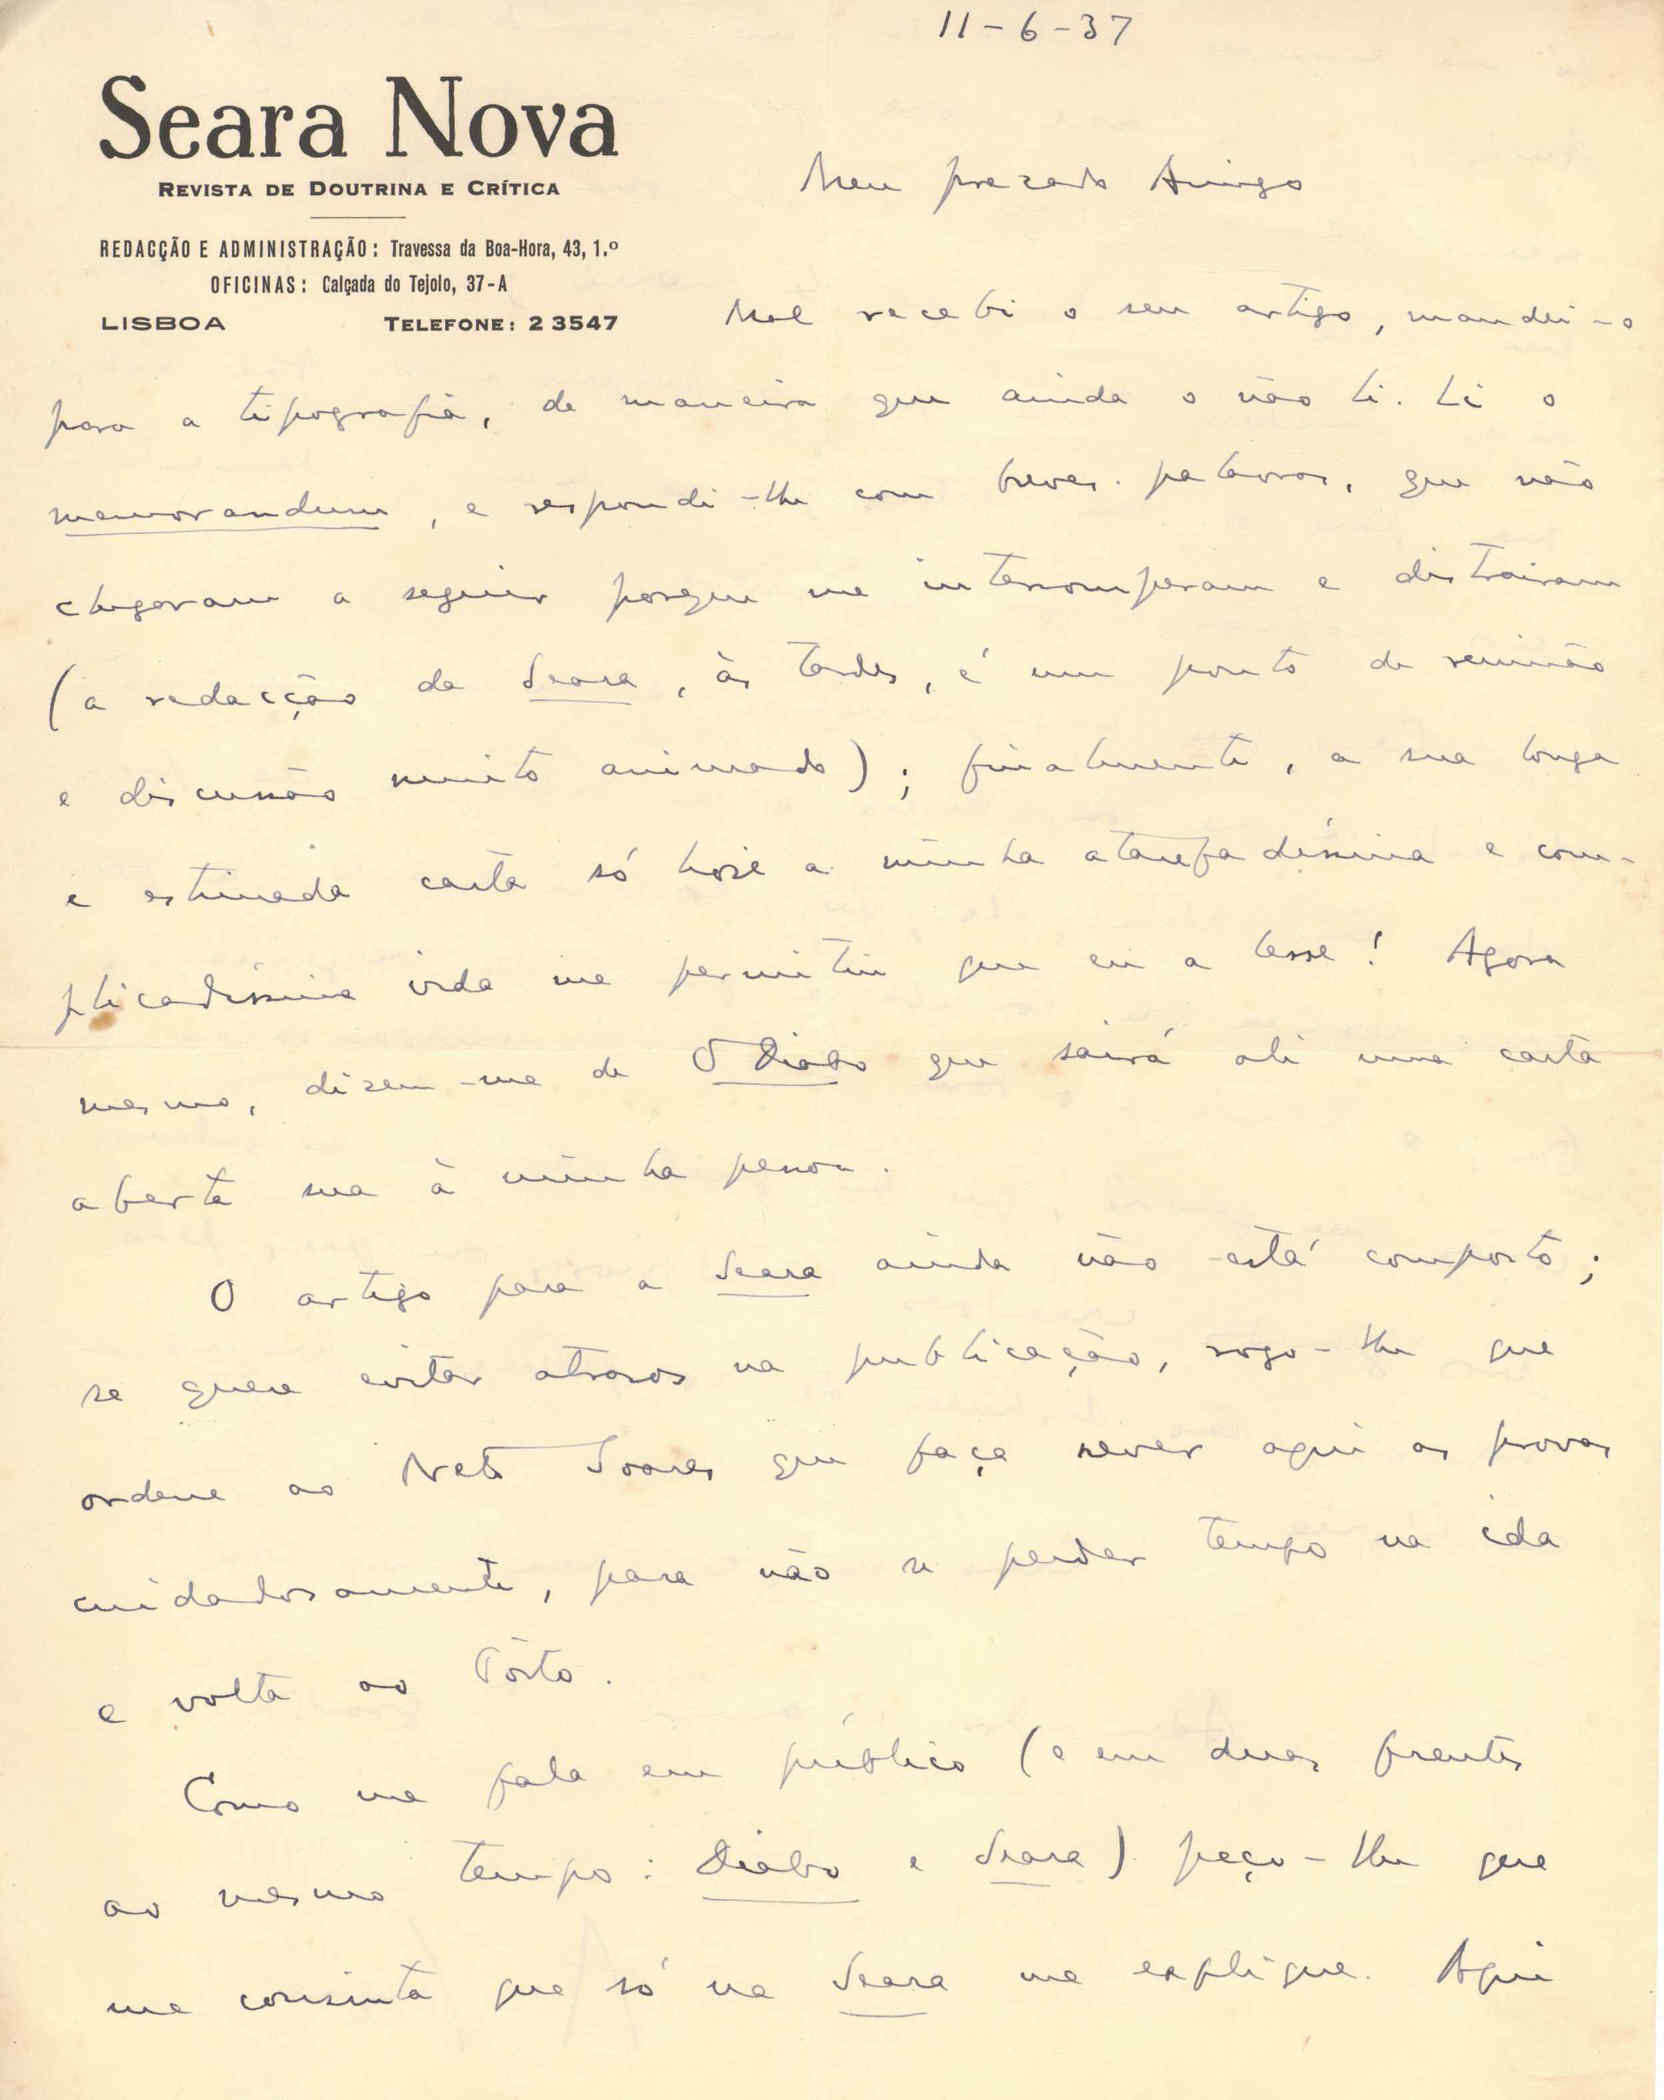 11-6-37
Seara Nova
REVISTA DE DOUTRINA E CRÍTICA
REDACÇÃO E ADMINISTRAÇÃO: Travessa da Boa-Hora, 43, 1.º
OFICINAS: Calçada do Tejolo, 37-A
LISBOA TELEFONE: 23547
Meu prezado Amigo
Mal recebi o seu artigo, mandei-o
para a tipografia, de maneira que ainda o não li. Li o
memorandum, e respondi-lhe com breves palavras, que não
chegaram a seguir porque me interromperam e distraíram
(a redacção da Seara, às tardes, é um ponto de reunião
e discussão muito animado); finalmente, a sua longa
e estimada carta só hoje a minha atarefadíssima e com-
plicadíssima vida me permitiu que eu a lesse! Agora
mesmo, dizem-me de O Diabo que sairá ali uma carta
aberta sua à minha pessoa.
O artigo para a Seara ainda não está composto;
se quere evitar atrasos na publicação, rogo-lhe que
ordene ao Neto Soares que faça rever aqui as provas
cuidadosamente, para não se perder tempo na ida
e volta ao Pôrto.
Como me fala em público (e em duas frentes
ao mesmo tempo: Diabo e Seara) peço-lhe que
me consinta que só na Seara me explique. Aqui